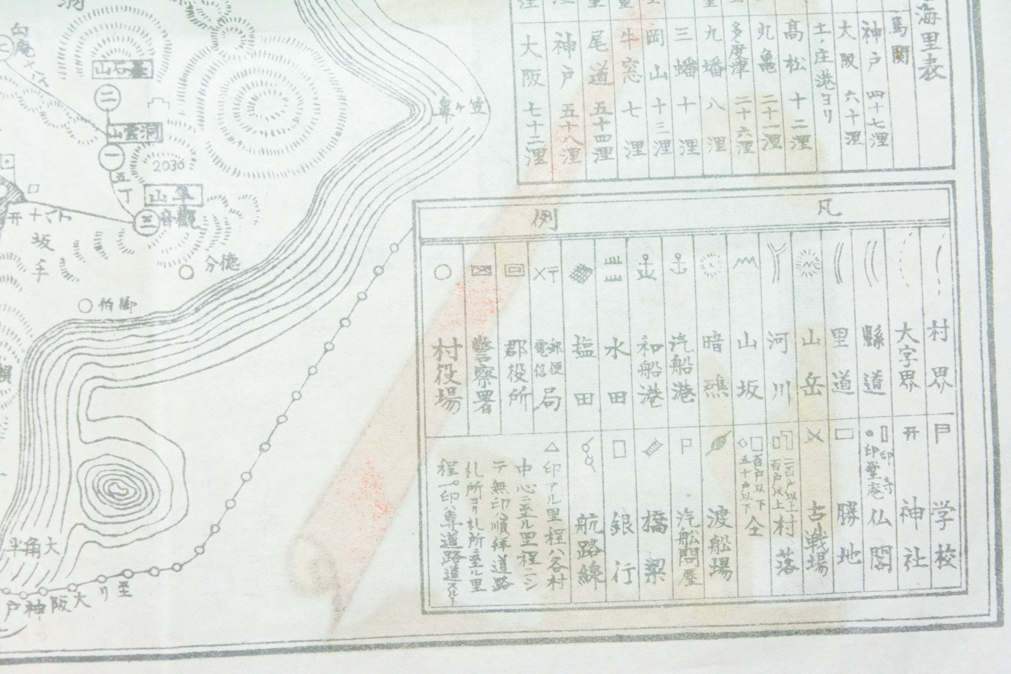 海里表
土庄港ヨリ
神戸 四十七浬
大阪 六十浬
高松 十二浬
丸亀 二十一浬
多度津 二十六浬
九幡 八浬
三蟠 十浬
岡山 十三浬
牛窓 七浬
尾道 五十四浬
神戸 五十八浬
大阪 七十二浬
凡例
村界
大字界
縣道
里道
山岳
河川
山坂
暗礁
汽船港
和船港
水田
塩田
郵便電信局
郡役所
警察署
村役場
学校
神社
仏閣
勝地
古戦場
村落
渡船場
汽船問屋
橋梁
銀行
航路線
△印アル里程ハ各村
中心ニ至ル里程ニシ
テ無印ハ順拝道路
札所ヨリ札所ニ至ル里
碁石山
二
洞雲山
一
五丁
2030
隼山
三
観音
坂手
徳分
御伯
笠ケ鼻
大角半
至リ大阪神戸